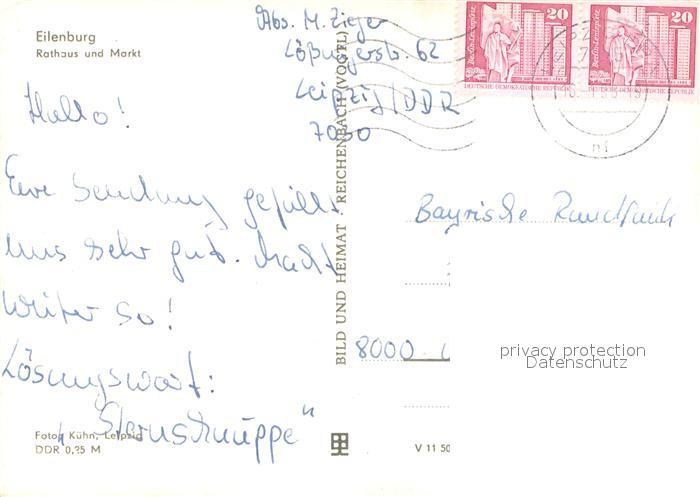 Eilenburg
Rathaus und Markt
Abs. M. Zieger
Lößnigerstr. 62
Leipzig/DDR
7030
Hallo!
Eure Sendung gefällt
uns sehr gut. Macht
weiter so!
Lösungswort:
„Sternschnuppe"
Foto: Kühn, Leipzig
DDR 0,25 M
BILD UND HEIMAT · REICHENBACH (VOGTL)
V 11 50
Berlin-Leninplatz 20
DEUTSCHE DEMOKRATISCHE REPUBLIK
Berlin-Leninplatz 20
DEUTSCHE DEMOKRATISCHE REPUBLIK
nf
Bayrische Rundfunk
8000
privacy protection
Datenschutz